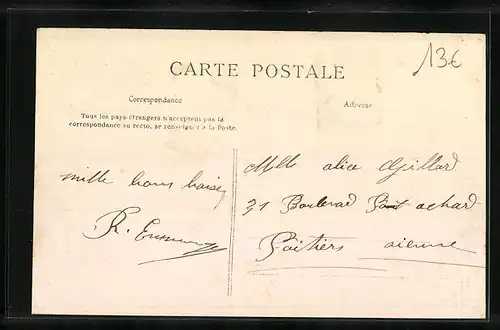 13€
CARTE POSTALE
Correspondance
Adresse
Tous les pays étrangers n'acceptent pas la
correspondance au recto, se renseigner à la Poste.
mille bons baisers
Mlle alice
31 Boulevard Pont achard
Poitiers vienne